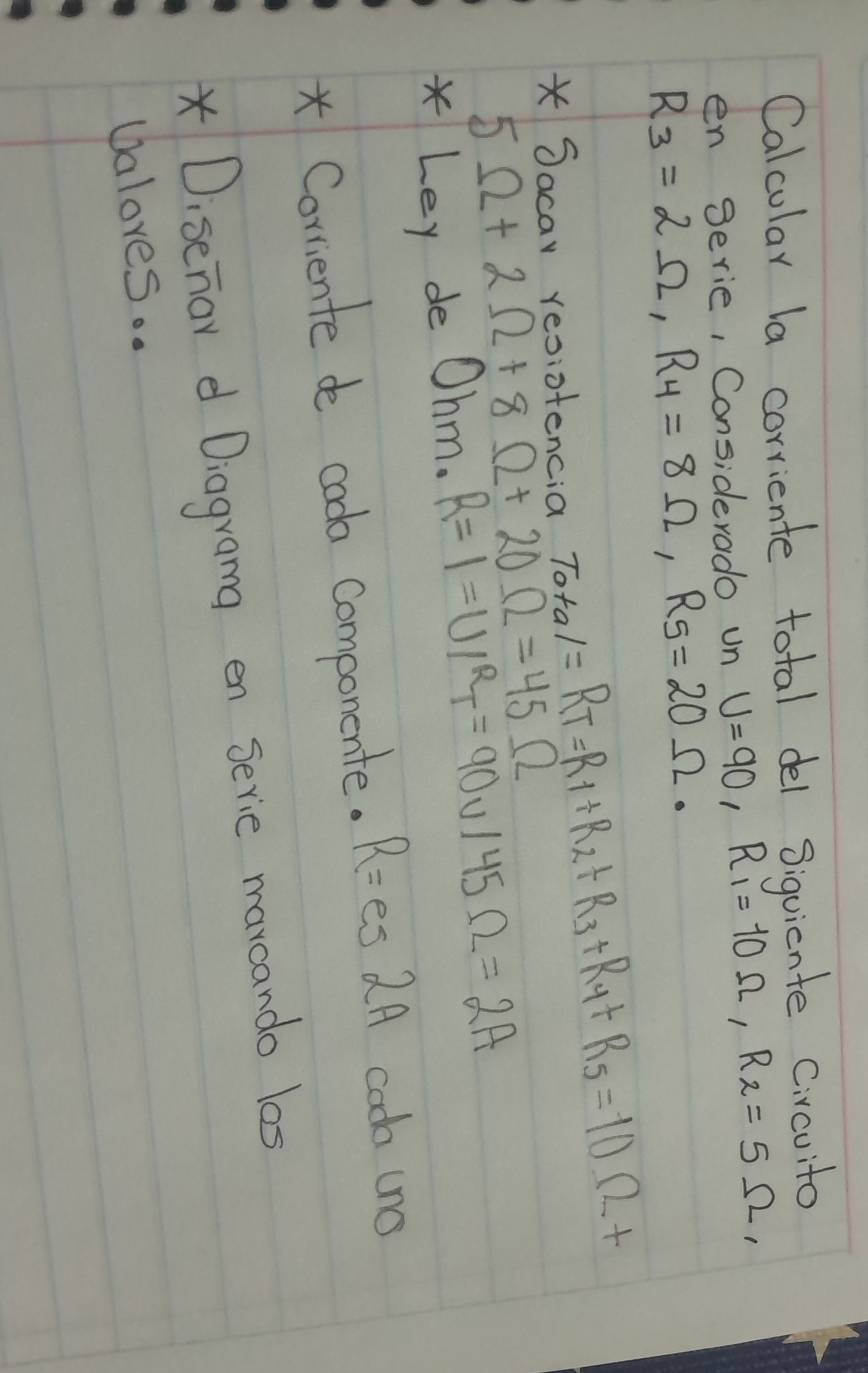 Calcular la corriente total del siguiente circuito
en serie, Considerado un U=90, R1=10Ω, R2=5Ω,
R3=2Ω, R4=8Ω, R5=20Ω.
* Sacar resistencia Total= RT=R1+R2+R3+R4+R5=10Ω+
5Ω+2Ω+8Ω+20Ω=45Ω
* Ley de Ohm. R=I=U/RT=90v/45Ω=2A
* Corriente de cada componente. R=es 2A cada uno
* Diseñar el Diagrama en serie marcando los
valores..